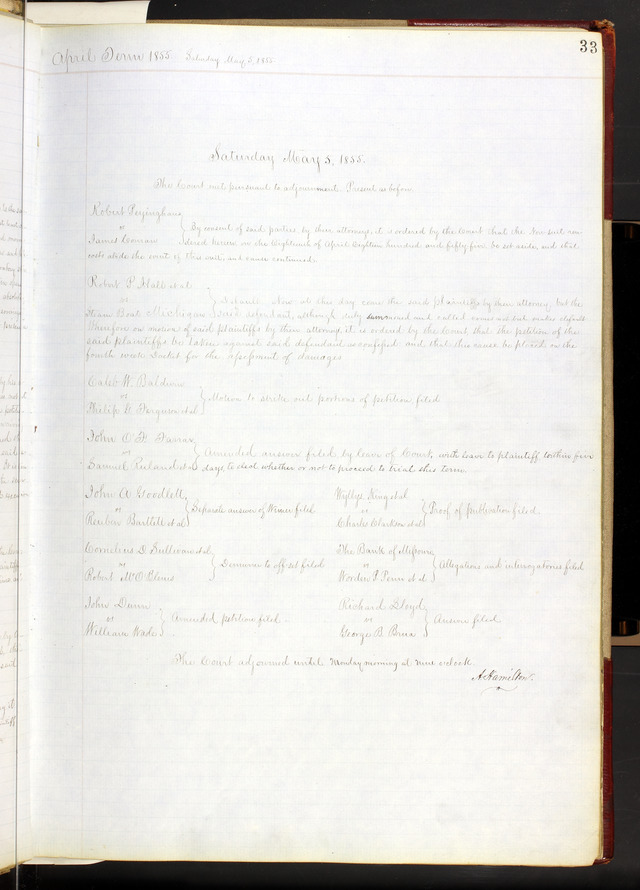 33
April Term 1855 Saturday May 5, 1855
Saturday May 5, 1855.
The Court met pursuant to adjournment. Present as before.
Robert
vs
James
By consent of said parties by their attorneys, it is ordered by the Court that the Non suit ren-
dered herein on the Eighteenth of April Eighteen hundred and fifty five be set aside, and that
costs abide the event of this suit, and cause continued.
Robert P. Hall et al
vs
Steam Boat Michigan
Default. Now at this day come the said plaintiffs by their attorney, but the
said defendant, although duly summoned and called comes not but makes default
Wherefore on motion of said plaintiffs by their attorney it is ordered by the Court that the petition of the
said plaintiffs be taken against said defendant as confessed and that this cause be placed on the
fourth Docket for the assessment of damages
Caleb W. Baldwin
vs
Philip D. Ferguson et al
Motion to strike out portions of petition filed
John O. F. Farrar
vs
Samuel Ruland et al
Amended answer filed, by leave of Court, with leave to plaintiff within five
days to elect whether or not to proceed to trial this term
John A Goodlett
vs
Reuben Bartlett et al
Separate answer of filed
Wyllys King et al
vs
Charles Clarkson et al
Proof of publication filed.
Cornelius D Sullivan et al
vs
Robert McO'Blenis
Demurrer to off-set filed
The Bank of Missouri
vs
Worden P. et al
Allegations and interrogatories filed
John Dunn
vs
William Wade
Amended petition filed
Richard Lloyd
vs
George B.
Answer filed
The Court adjourned until Monday morning at nine o'clock.
A. Hamilton.